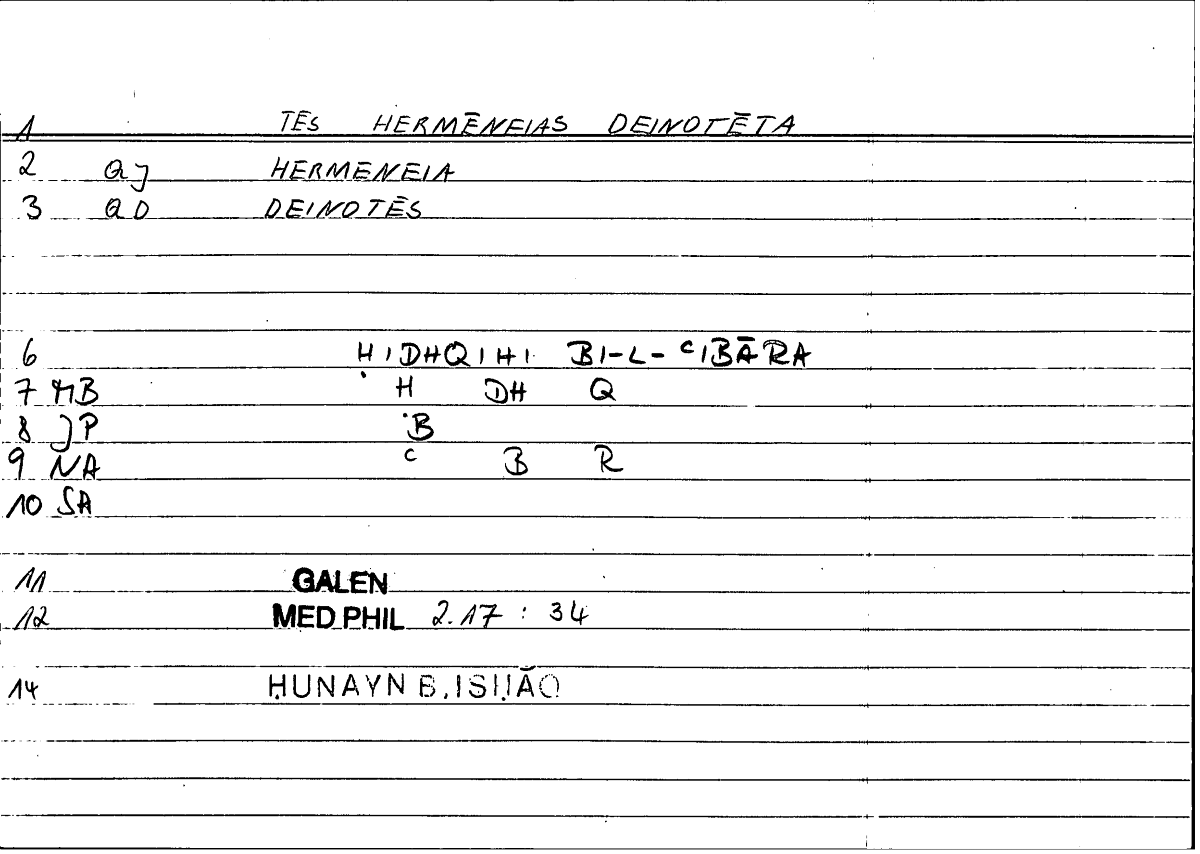 1 TĒS HERMĒNEIAS DEINOTĒTA
2 QJ HERMĒNEIA
3 QD DEINOTĒS
6 ḤIDHQIHI BI-L-ᶜIBĀRA
7 MB Ḥ DH Q
8 JP B
9 NA ᶜ B R
10 SA
11 GALEN
12 MED PHIL 2.17 : 34
14 ḤUNAYN B. ISḤĀQ